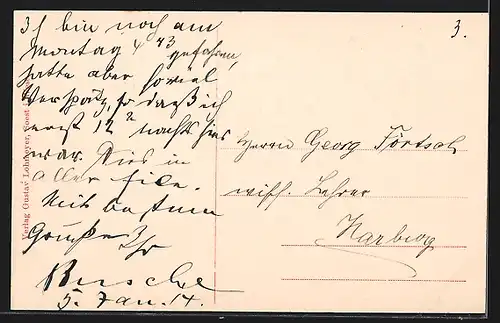 Ich bin noch am
Montag 4 43 gefahren,
hatte aber soviel
Verspätg, so daß ich
erst 12 2 nachts hier
war. Dies in
aller Eile.
Mit besten
Grüßen Ihr
Busche
5. Jan. 14.
3.
Herrn Georg Förtsch
wiss. Lehrer
Harburg
Verlag Gustav Lohmeyer, Soest i.